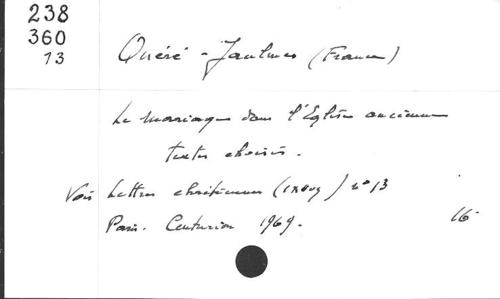 238
360
13
Quéré-Jaulmes (France)
Le mariage dans l'Eglise ancienne
textes choisis.
Voir Lettres chrétiennes (1xoug) n° 13
Paris. Centurion 1969.
16